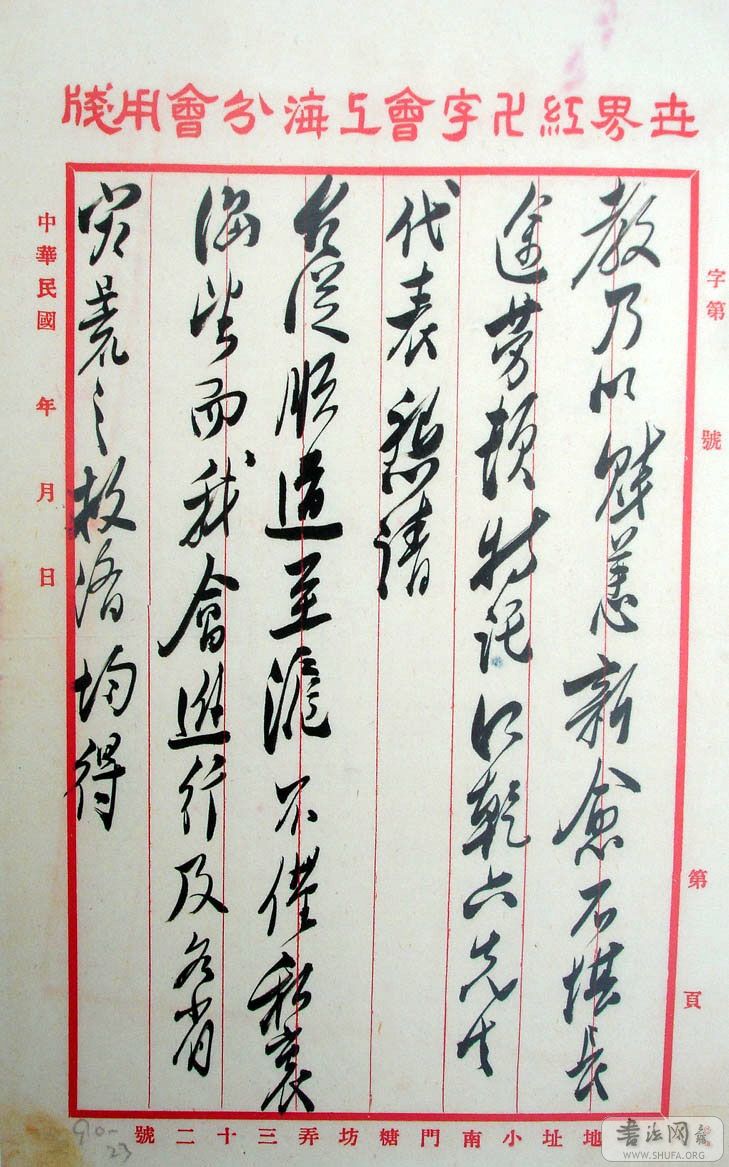 世界紅卍字會上海分會用牋
字第 號
第 頁
教乃以賤恙新愈不堪長
途勞頓特託乾六先生
代表懇請
台從順道至滬不僅私衷
而我會進行及各省
灾荒之救濟均得
中華民國 年 月 日
地址小南門糖坊弄三十二號
90-
23
書法网
WWW.SHUFA.ORG